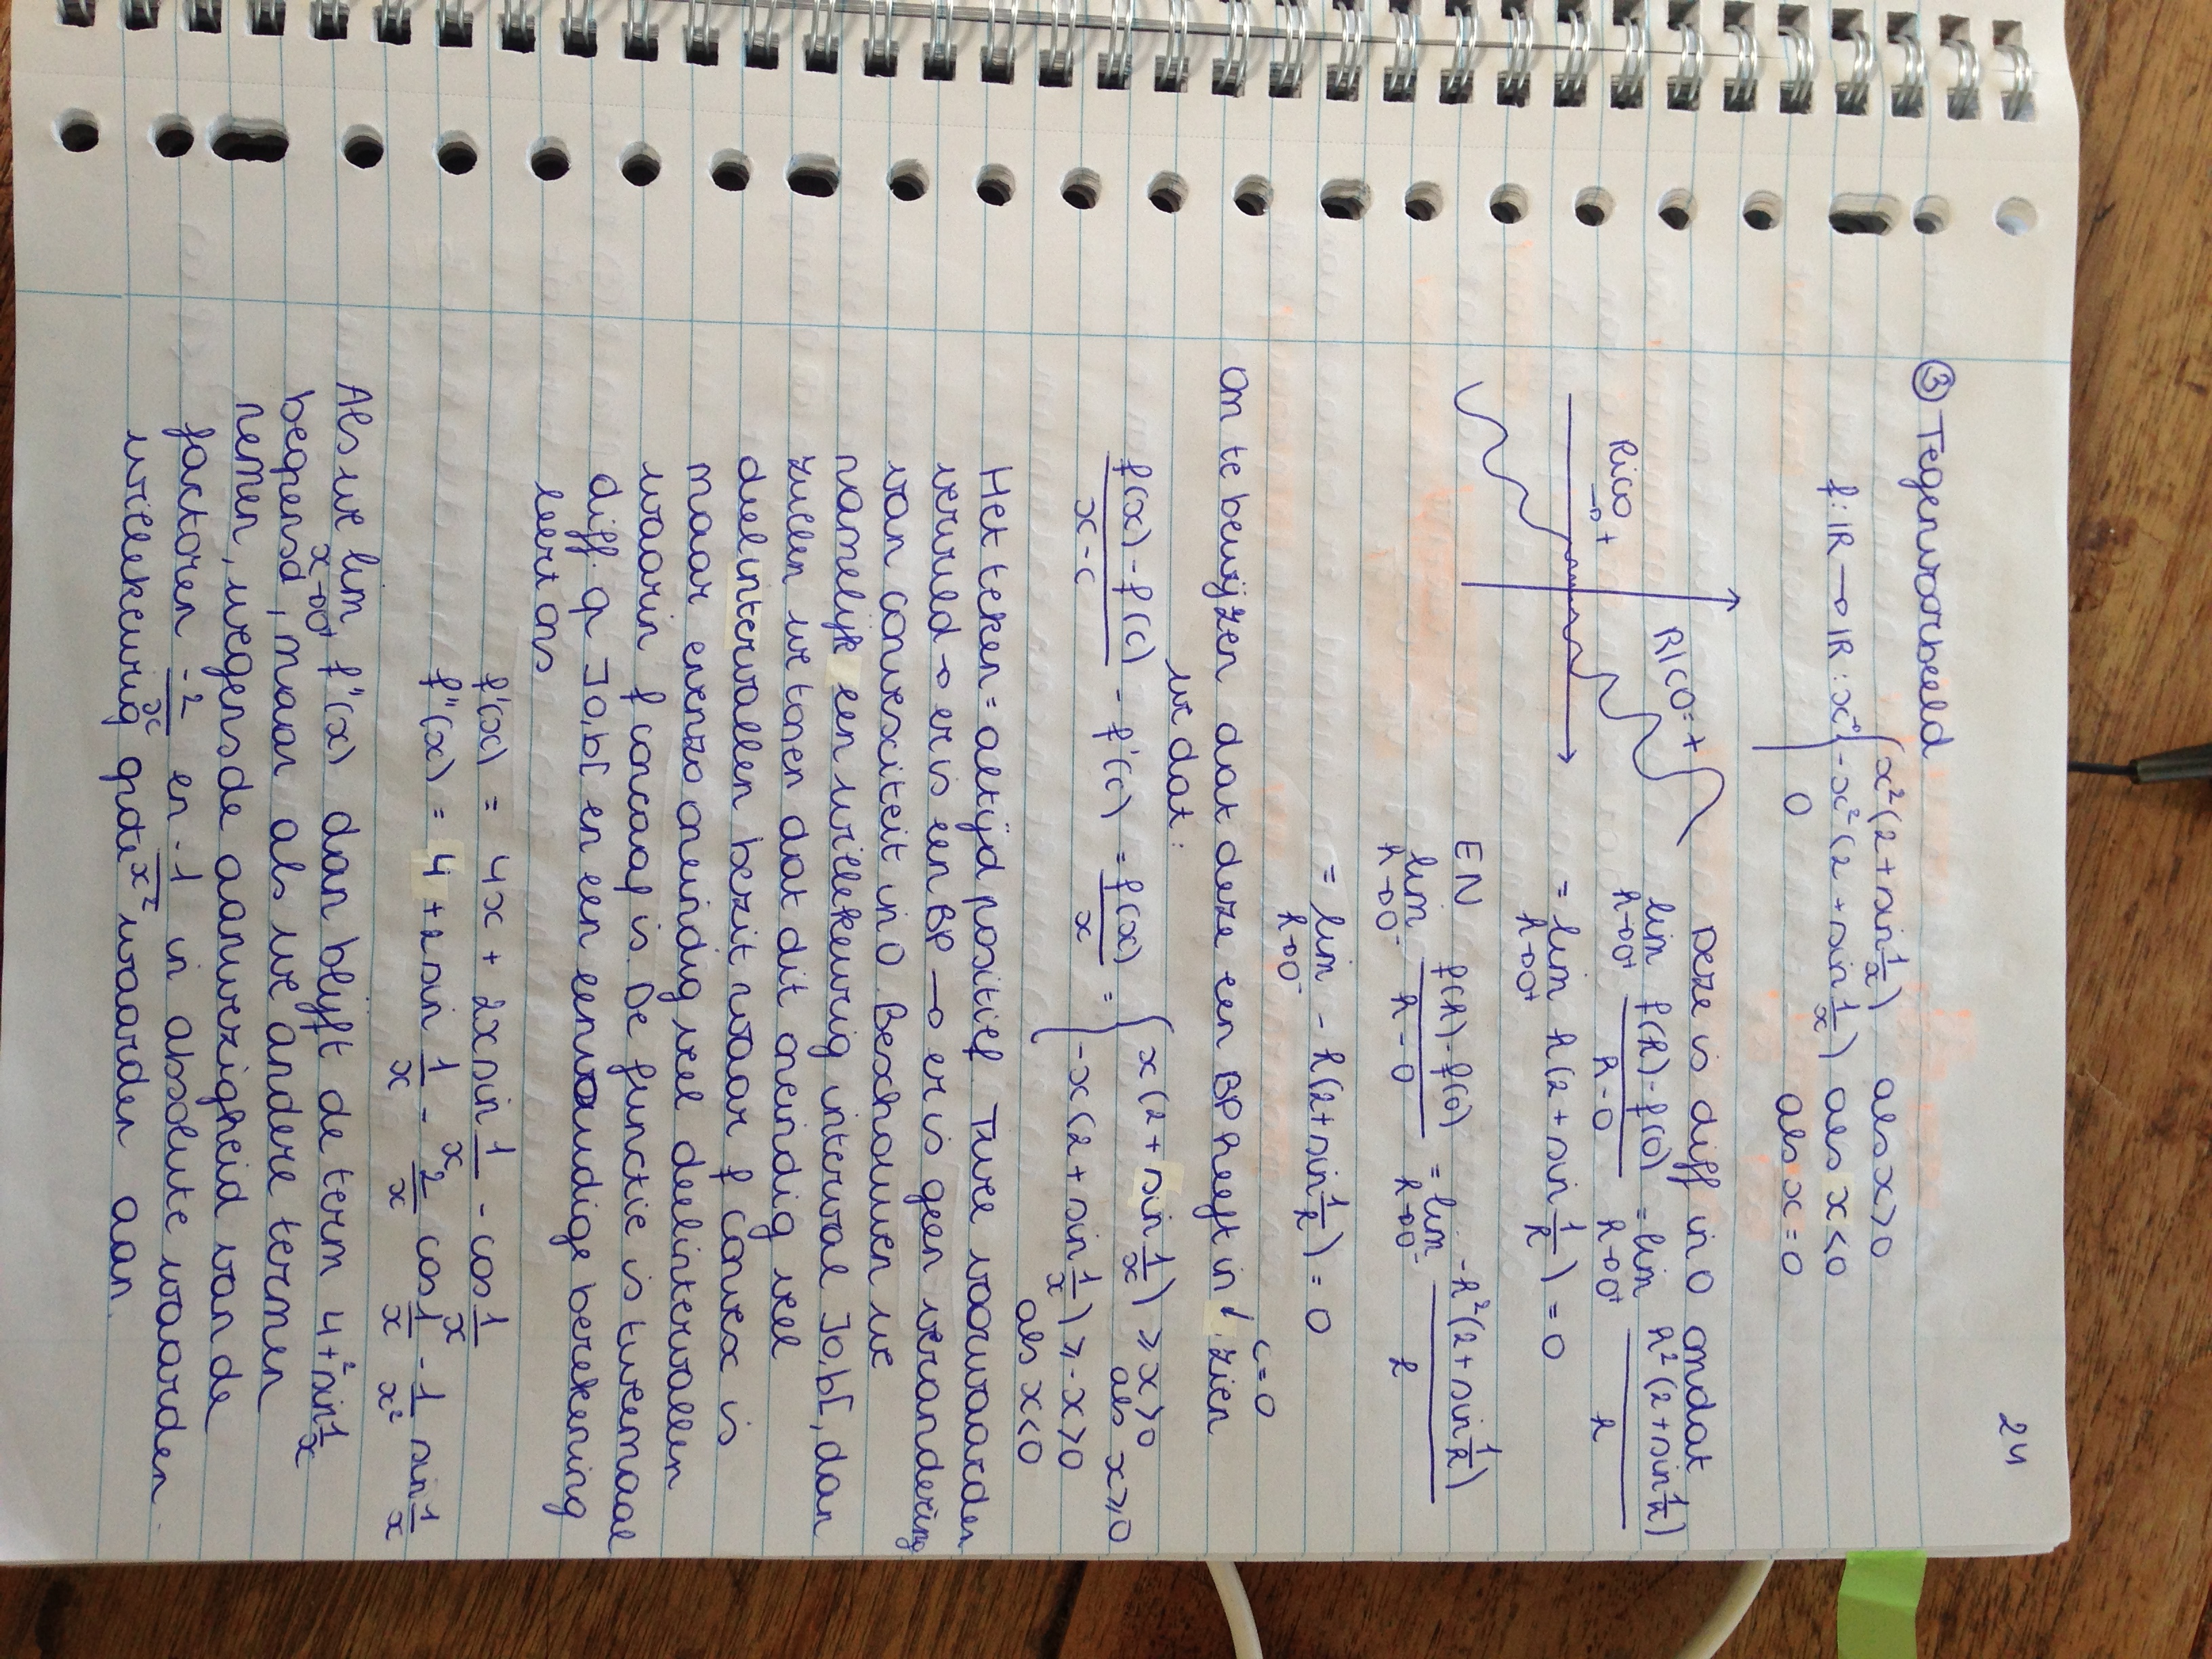 24
③ Tegenvoorbeeld
f: ℝ → ℝ : x → { x²(2 + sin 1/x) als x > 0
-x²(2 + sin 1/x) als x < 0
0 als x = 0
RICO = +
Rico → +
Deze is diff in 0 omdat
lim h→0⁺ (f(h) - f(0))/(h - 0) = lim h→0⁺ h²(2 + sin 1/h)/h
= lim h→0⁺ h(2 + sin 1/h) = 0
EN
lim h→0⁻ (f(h) - f(0))/(h - 0) = lim h→0⁻ -h²(2 + sin 1/h)/h
= lim h→0⁻ - h(2 + sin 1/h) = 0
c = 0
Om te bewijzen dat deze een BP heeft in ↓ zien
we dat:
(f(x) - f(c))/(x - c) - f'(c) = f(x)/x = { x(2 + sin 1/x) ⩾ x > 0
als x ⩾ 0
-x(2 + sin 1/x) ⩾ -x > 0
als x < 0
Het teken = altijd positief. Twee voorwaarden
vervuld → er is een BP → er is geen verandering
van convexiteit in 0. Beschouwen we
namelijk een willekeurig interval ]0,b[, dan
zullen we tonen dat dit oneindig veel
deelintervallen bezit waar f convex is
maar evenzo oneindig veel deelintervallen
waarin f concaaf is. De functie is tweemaal
diff. op ]0,b[ en een eenvoudige berekening
leert ons
f'(x) = 4x + 2x sin 1/x - cos 1/x
f''(x) = 4 + 2 sin 1/x - 2/x cos 1/x - 1/x² sin 1/x
Als we lim x→0⁺ f''(x) dan blijft de term 4 + 2 sin 1/x
begrensd, maar als we andere termen
nemen, wegens de aanwezigheid van de
factoren -2/x en -1/x² in absolute waarden
willekeurig grote waarden aan.